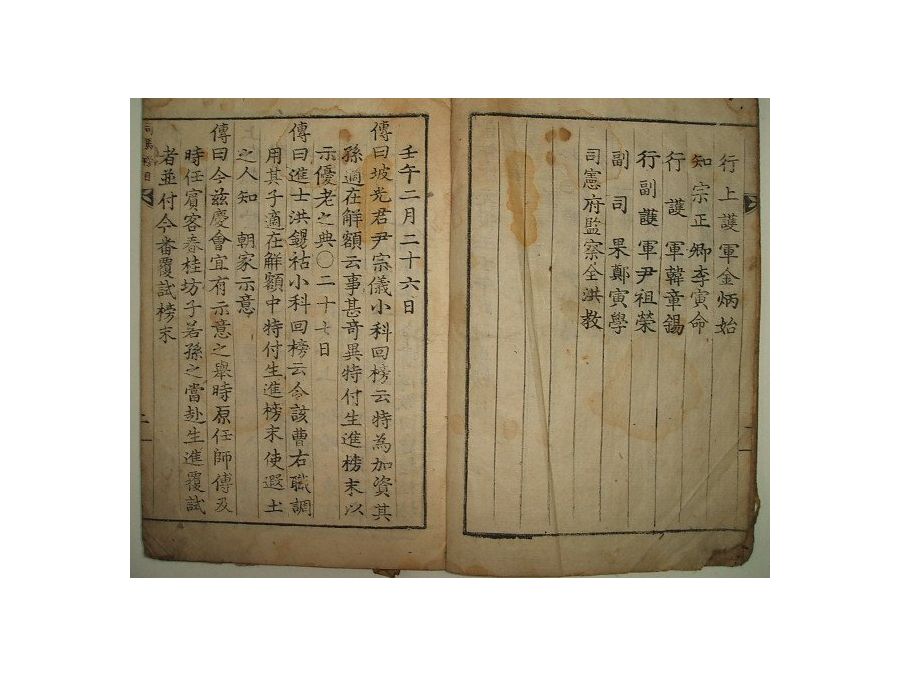 行上護軍金炳始
知宗正卿李寅命
行護軍韓章錫
行副護軍尹祖榮
副司果鄭寅學
司憲府監察全洪教
壬午二月二十六日
傳曰坡光君尹宗儀小科回榜云特為加資其
孫適在解額云事甚奇異特付生進榜末以
示優老之典〇二十七日
傳曰進士洪錫祜小科回榜云令該曹右職調
用其子適在解額中特付生進榜末使遐土
之人知朝家示意
傳曰今茲慶會宜有示意之舉時原任師傅及
時任賓客春桂坊子若孫之當赴生進覆試
者並付今番覆試榜末
司馬榜目
二